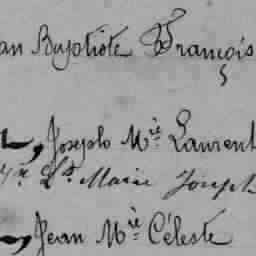 an Baptiste François
, Joseph M.ie Laurent
Marie Joseph
, Jean M.ie Céleste